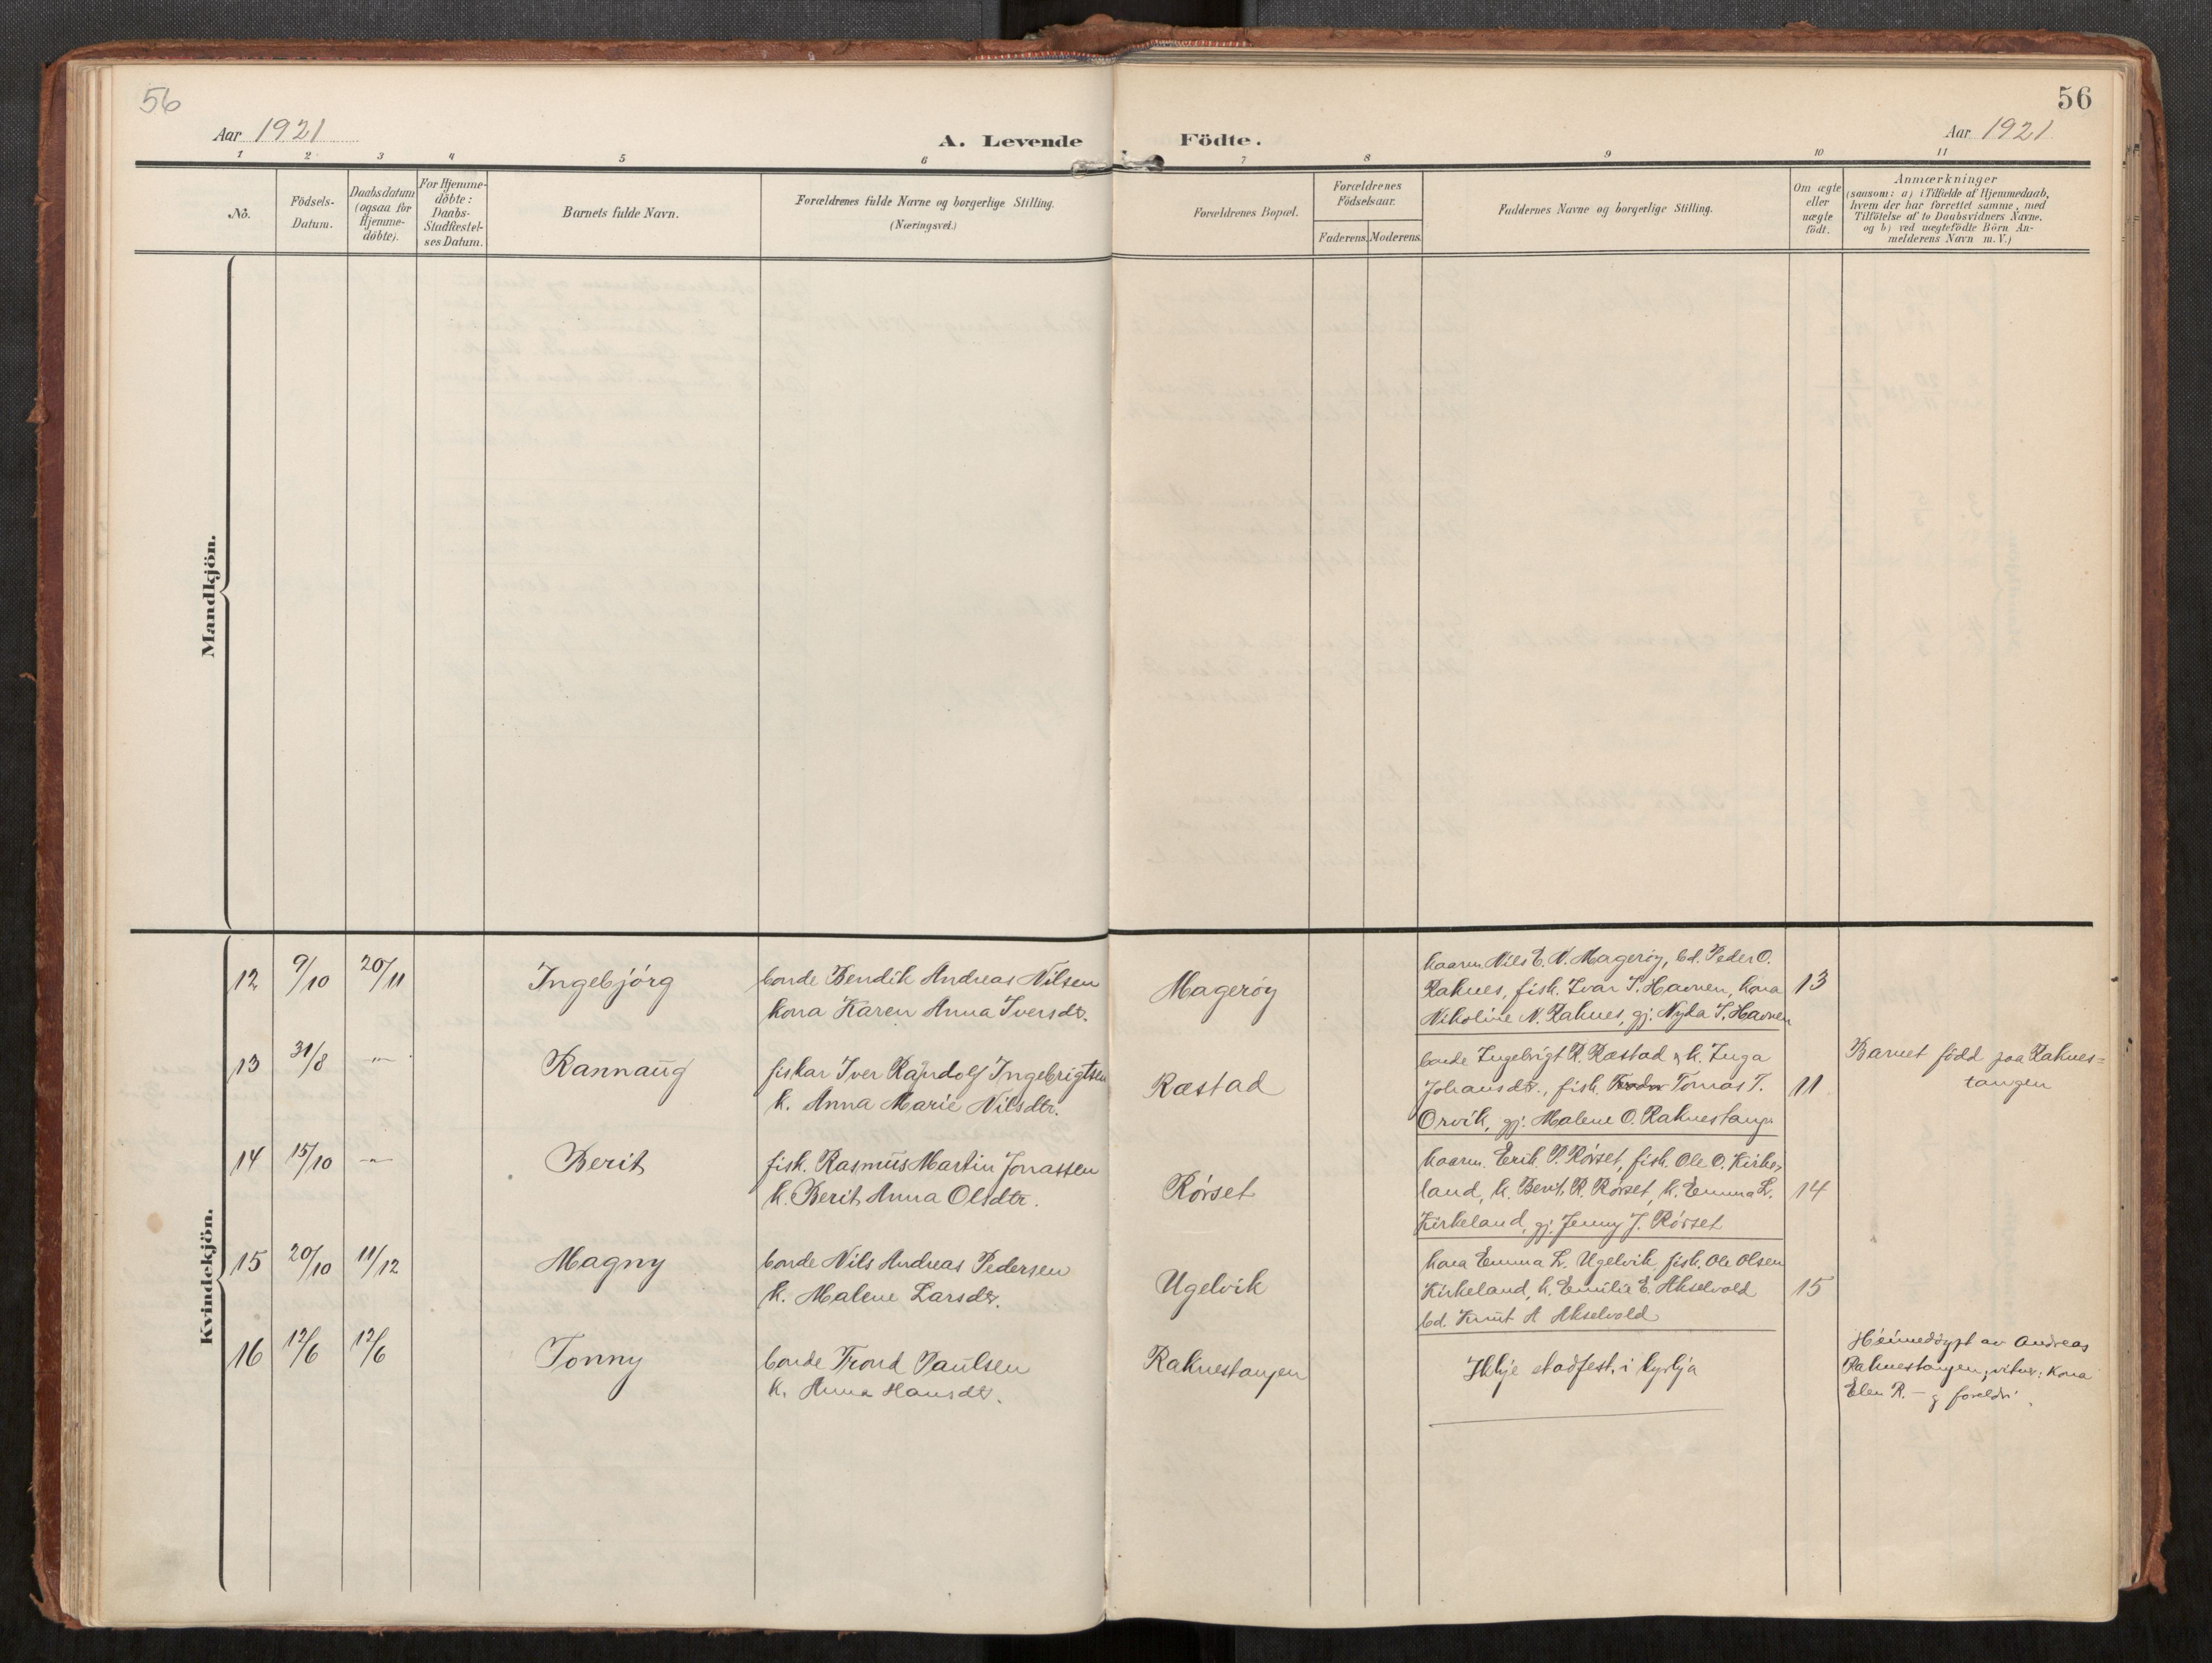 56
56
Aar 1921
A. Levende Födte.
Aar 1921
1 2 3 4 5 6 7 8 9 10 11
No.
Födsels-
Datum.
Daabsdatum
(ogsaa for
Hjemme-
döbte).
For Hjemme-
döbte:
Daabs-
Stadfæstel-
ses Datum.
Barnets fulde Navn.
Forældrenes fulde Navne og borgerlige Stilling.
(Næringsvei.)
Forældrenes Bopæl.
Forældrenes
Födselsaar.
Faderens. Moderens.
Faddernes Navne og borgerlige Stilling.
Om ægte
eller
uægte
födt.
Anmærkninger
(saasom: a) i Tilfælde af Hjemmedaab,
hvem der har forrettet samme, med
Tilföielse af to Daabsvidners Navne,
og b) ved uægtefödte Börn An-
melderens Navn m.V.)
Mandkjön.
Kvindekjön.
12 9/10 20/11 Ingebjörg
bonde Bendik Andreas Nilsen
kona Karen Anna Iversdr.
Magerøy
kaarm. Nils E. N. Magerøy, bd. Peder O.
Raknes, fisk. Ivar I. Havnen, kona
Nikoline N. Raknes, gj. Nyla I. Havnen
13
13 31/8 -"- Rannaug
fiskar Iver Randolf Ingebrigtsen
k. Anna Marie Nilsdtr.
Ræstad
bonde Ingebrigt R. Ræstad & k. Inga
Johansdtr., fisk. Tomas T.
Orvik, gj. Malene O. Raknestang.
11
Barnet född paa Raknes=
tangen
14 15/10 -"- Berit
fisk. Rasmus Martin Jonassen
k. Berit Anna Olsdtr.
Rörset
kaarm. Erik P. Rörset, fisk. Ole O. Kirke,
land, k. Berit R. Rörset, k. Emma L.
Kirkeland, gj. Jenny J. Rörset
14
15 20/10 11/12 Magny
bonde Nils Andreas Pedersen
k. Malene Larsdr.
Ugelvik
kona Emma L. Ugelvik, fisk. Ole Olsen
Kirkeland, k. Emilie E. Akselvold
bd. Knut A Akselvold
15
16 12/6 12/6 Tonny
bonde Trond Paulsen
k. Anna Hansdr.
Raknestangen
Ikkje stadfest i kyrkja
Heimedöypt av Andreas
Raknestangen, vitner: Kona
Elen R. - g foreldri.